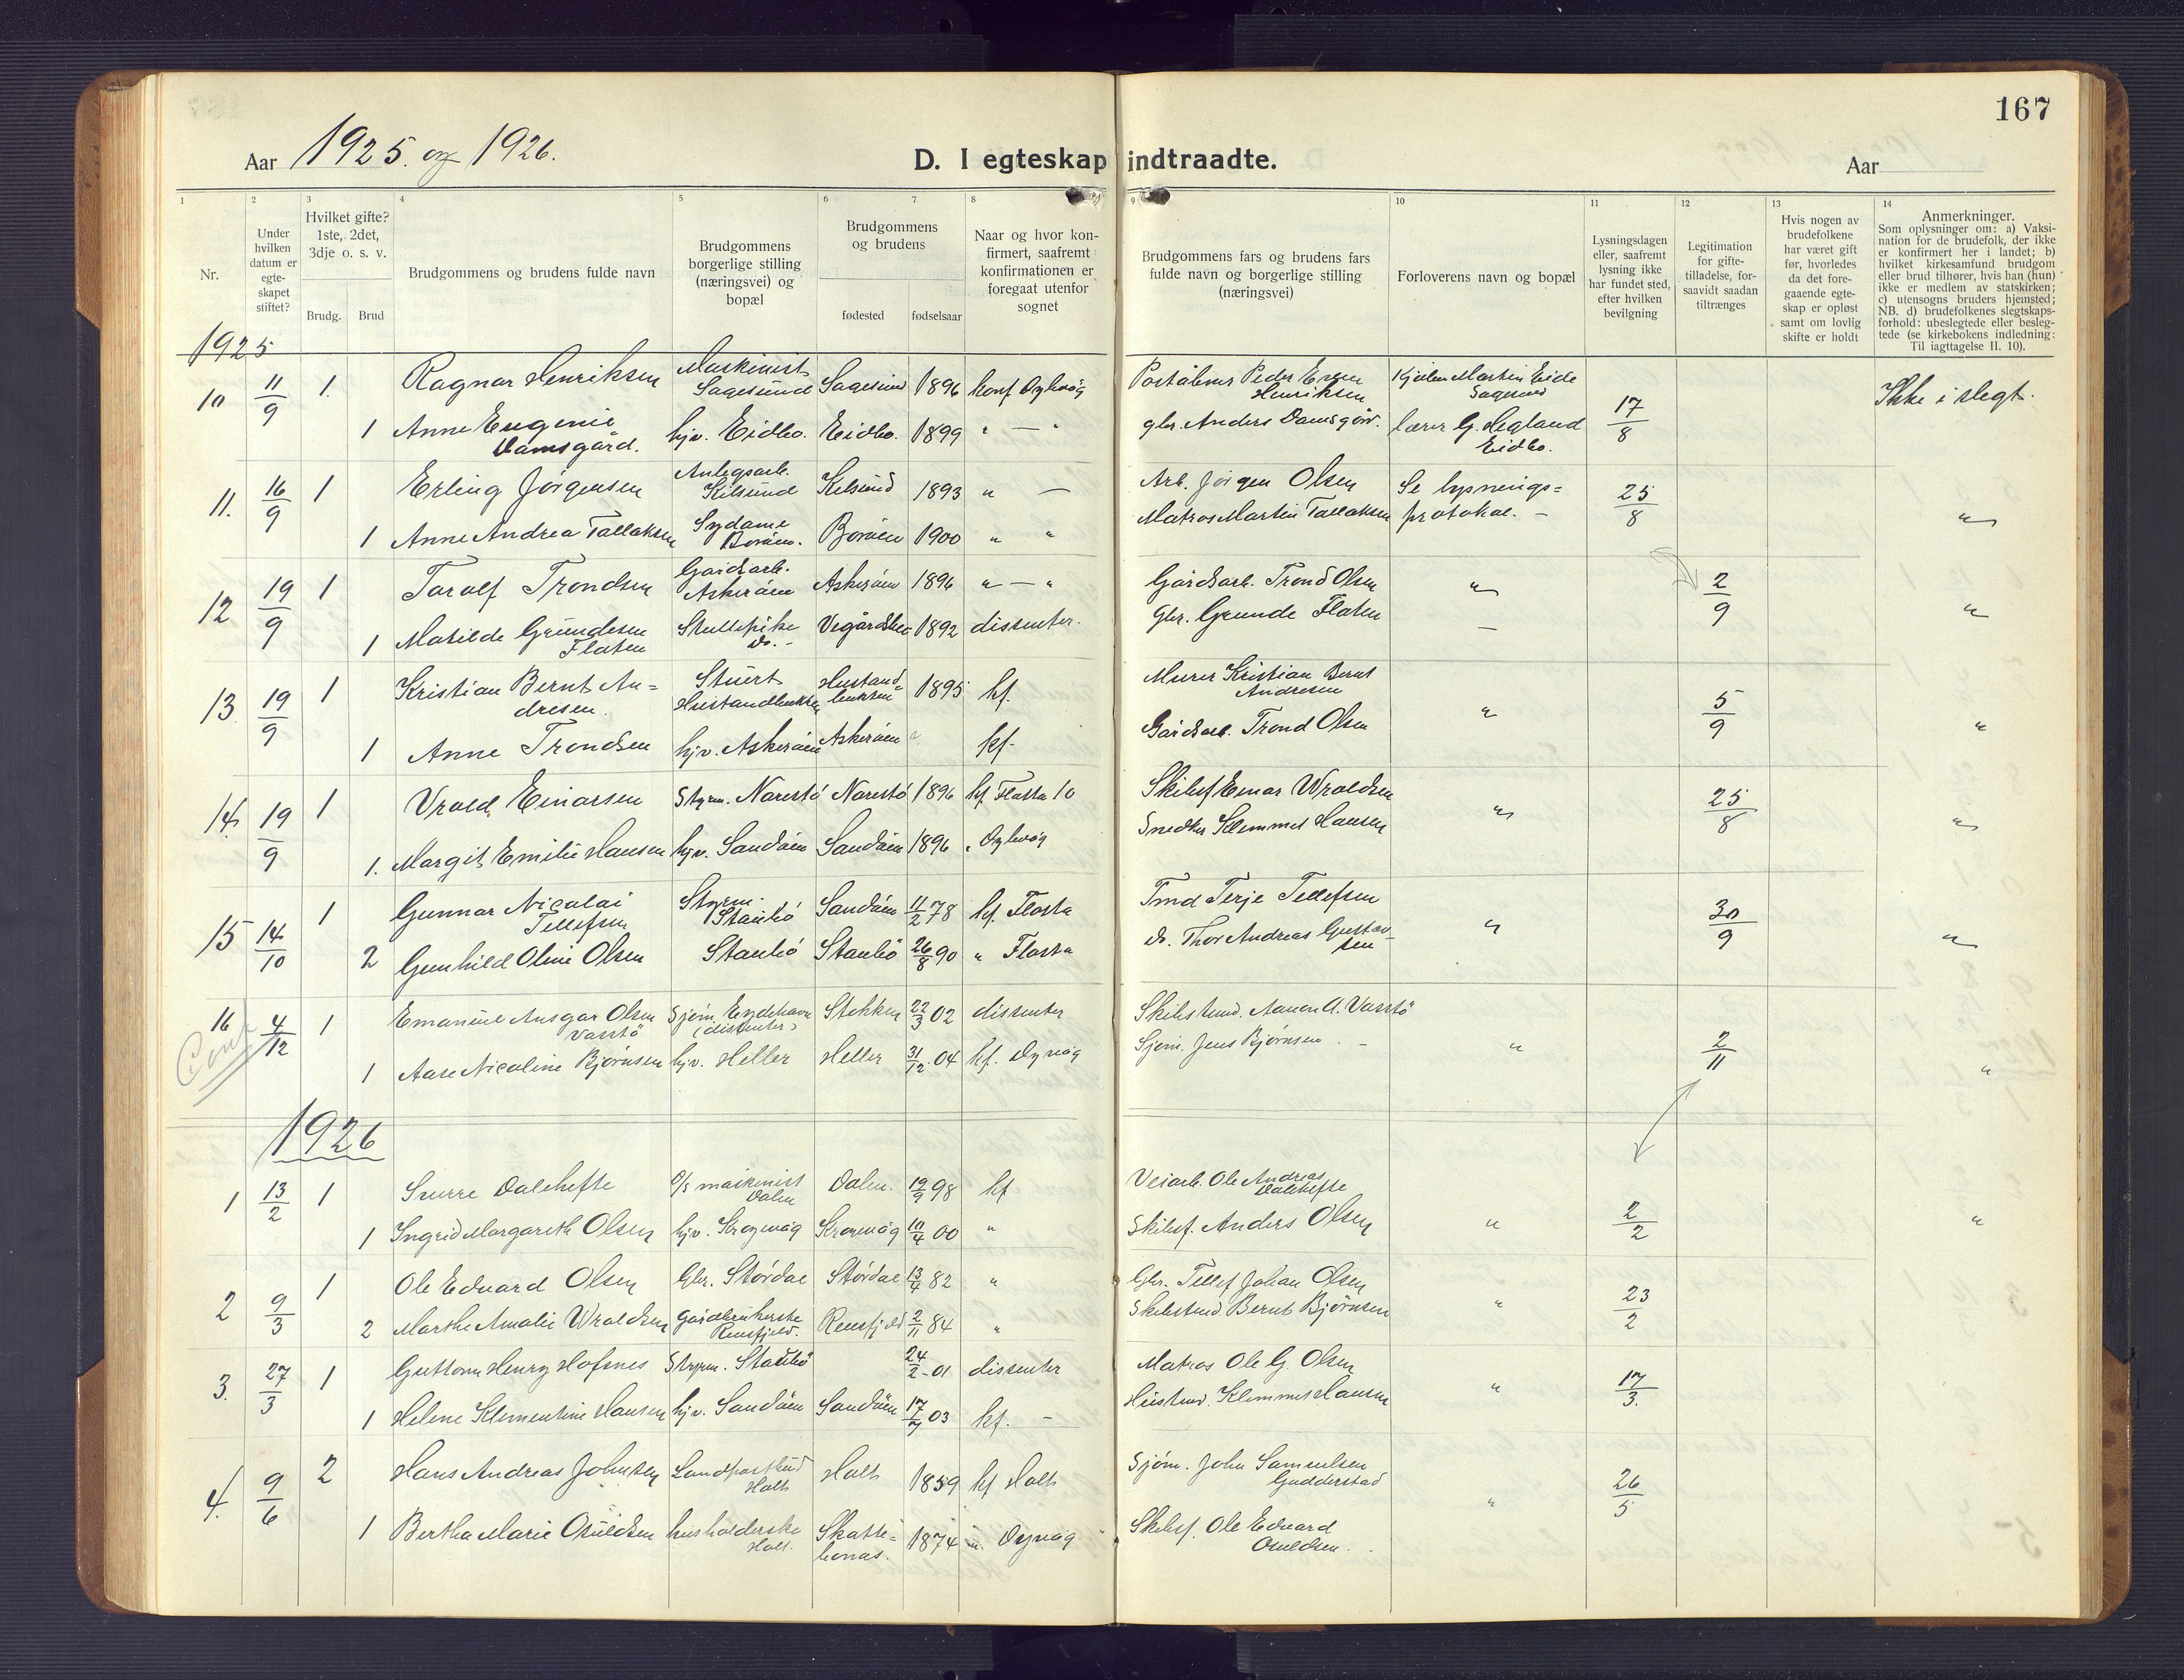 167
Aar 1925. og 1926.
D. I egteskap indtraadte.
Aar
1 2 3 4 5 6 7 8 9 10 11 12 13 14
Nr.
Under hvilken datum er egte-skapet stiftet?
Hvilket gifte? 1ste, 2det, 3dje o. s. v.
Brudg. Brud
Brudgommens og brudens fulde navn
Brudgommens borgerlige stilling (næringsvei) og bopæl
Brudgommens og brudens
fødested fødselsaar
Naar og hvor kon-firmert, saafremt konfirmationen er foregaat utenfor sognet
Brudgommens fars og brudens fars fulde navn og borgerlige stilling (næringsvei)
Forloverens navn og bopæl
Lysningsdagen eller, saafremt lysning ikke har fundet sted, efter hvilken bevilgning
Legitimation for gifte-tilladelse, for-saavidt saadan tiltrænges
Hvis nogen av brudefolkene har været gift før, hvorledes da det fore-gaaende egte-skap er opløst samt om lovlig skifte er holdt
Anmerkninger.
Som oplysninger om: a) Vaksi-nation for de brudefolk, der ikke er konfirmert her i landet; b) hvilket kirkesamfund brudgom eller brud tilhører, hvis han (hun) ikke er medlem av statskirken; c) utensogns bruders hjemsted; NB. d) brudefolkenes slegtskaps-forhold: ubeslegtede eller besleg-tede (se kirkebokens indledning: Til iagttagelse II. 10).
1925
10 11/9 1. Ragnar Henriksen Maskinist Sagesund Sagesund 1896 konf Dybvåg Poståbner Peder Henriksen Martin Eide Sagesund 17/8 Ikke i slegt.
1 Anne Eugenie Damsgård. hjv. Eidbo. Eidbo. 1899 " — " gbr. Anders Damsgård. lærer G. Hegland Eidbo.
11. 16/9 1 Erling Jörgensen Anlegsarb. Kilsund Kilsund 1893 " — Arb. Jörgen Olsen Se lysnings= 25/8 "
1 Anne Andrea Tallaksen Sydame Boröen. Boröen 1900 " " Matros Martin Tallaksen protokol. -
12 19/9 1 Taralf Trondsen Gårdsarb. Askeröen Askeröen 1896 " — " Gårdsarb. Trond Olsen " 2/9 "
1 Matilde Grundesen Flaten Do. - Vegårdshei 1892 dissenter. Gbr. Grunde Flaten —
13 19/9 1 Kristian Bernt An=dresen. Stuert 1895 kf. Murer Kristian Bernt Andresen " 5/9 "
1 Anne Trondsen hjv. Askeröen Askeröen kf. Gårdsarb. Trond Olsen
14. 19/9 1 Vrald Einarsen Styrm. Narestö Narestö 1896 kf. Flosta 10 Skibsf Einar Wraldsen " 25/8 "
1. Margit Emilie Hansen hjv. Sandöen Sandöen 1896 " Dybvåg Snedker Klemmet Hansen
15 14/10 1 Gunnar Nicolai Tellefsen Styrm. Staubö Sandöen 11/2 78 kf. Flosta Tmd Terje Tellefsen " 30/9 "
2 Gunhild Oline Olsen Staubö Staubö 26/8 90 " Flosta do. Thor Andreas Gustavsen
16 4/12 1 Emanuel Ansgar Olsen Vasstö Sjøm. Eydehavn (dissenter) Stokken 22/3 02 dissenter Skibstmd. Aanon A. Vasstö
1 Aase Nicoline Bjørnsen hjv. Heller Heller 31/12 04 kf. Dyvåg Sjøm. Jens Bjørnsen - " 2/11 "
1926
1 13/2 1 Sverre Dalehefte D/S maskinist Dalen Dalen. 12/9 98 kf Veiarb. Ole Andreas Dalehefte
1 Ingrid Margareth Olsen hjv. Krogevåg Krogevåg 10/4 00 " Skibsf. Anders Olsen " 2/2 "
2 9/3 1 Ole Edvard Olsen Gbr. Stördal Stördal 13/4 82 " Gbr. Tellef Johan Olsen
2 Marthe Amalie Wraldsen Gårdbrukerske Rensfjeld. Rensfjeld 2/11 84 " Skibstmd. Bernt Bjørnsen " 23/2
3. 27/3 1 Guttorm Henry Hofsnes Styrm. Staubö 24/2 01 dissenter Matros Ole G. Olsen
1 Helene Klementine Hansen hjv. Sandöen Sandöen 17/7 03 kf. - Klemmet Hansen " 17/3.
4. 9/6 2 Hans Andreas Johnsen Landpostbud Holt Holt 1859 kf Holt Sjøm. John Samuelsen Gudderstad
1 Bertha Marie Osuldsen husholderske Holt. 1874 " Dyvåg Skibsf. Ole Edvard Osuldsen. " 26/5